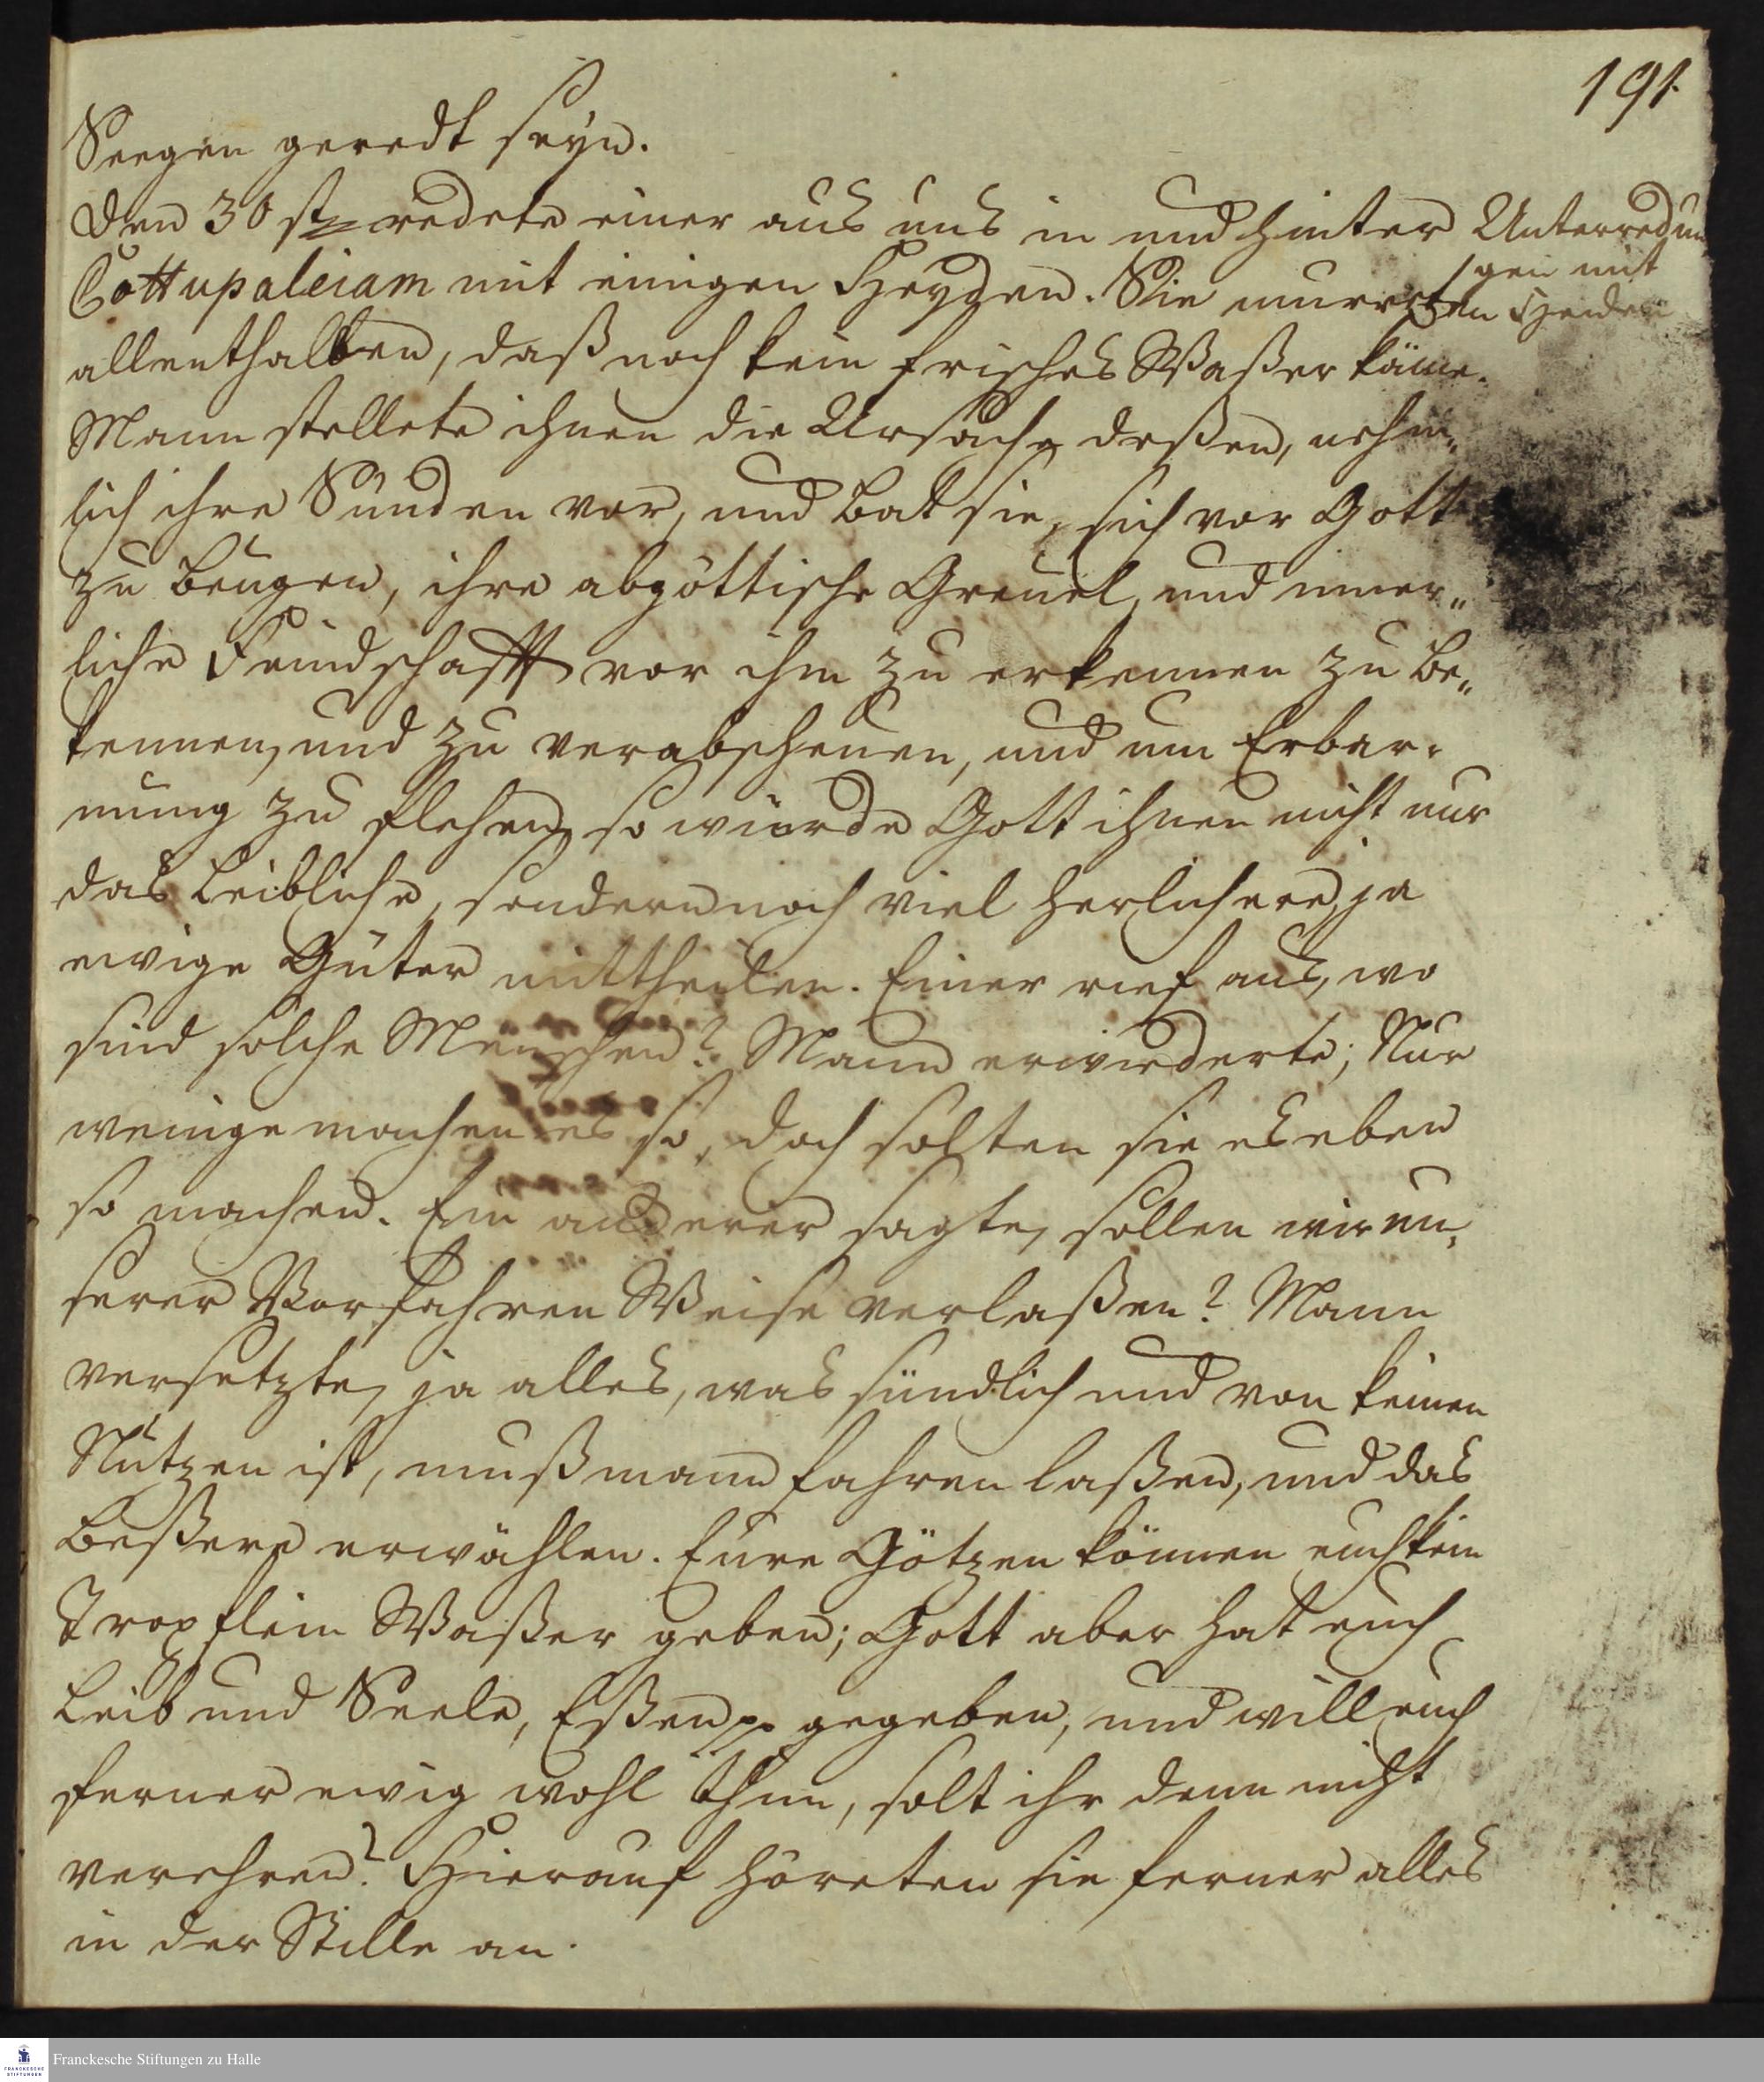 191.
Seegen geredt seyn.
Den 30 st. redete einer aus uns in und hinter
Unterredun
Cottupaleiam mit einigen Heyden. Sie murreten
gen mit
Heiden
allenthalben, daß noch kein frisches Waßer käme.
Mann stellete ihnen die Ursach deßen, nehm„
lich ihre Sünden vor, und bat sie, sich vor Gott
zu beugen, ihre abgöttische Greuel, und inner„
liche Feindschafft vor ihm zu erkennen zu be„
kennen, und zu verabscheuen, und um Erbar„
mung zu flehen, so würde Gott ihnen nicht nur
das Leibliche, sondern noch viel herlichere, ja
ewige Güter mittheilen. Einer rief aus, wo
sind solche Menschen? Mann erwiederte; Nur
wenige machen es so, doch solten sie es eben
so machen. Ein anderer sagte, sollen wir un„
serer Vorfahren Weise verlaßen? Mann
versetzte, ja alles, was sündlich und von keinen
Nutzen ist, muß mann fahren laßen, und das
beßere erwählen. Eure Götzen können euch kein
Tropflein Waßer geben; Gott aber hat euch
Leib und Seele, Eßen pp gegeben, und will euch
ferner ewig wohl thun, solt ihr denn nicht
verehren? Hierauf höreten sie ferner alles
in der Stille an.
Franckesche Stiftungen zu Halle
FRANCKESCHE
STIFTUNGEN